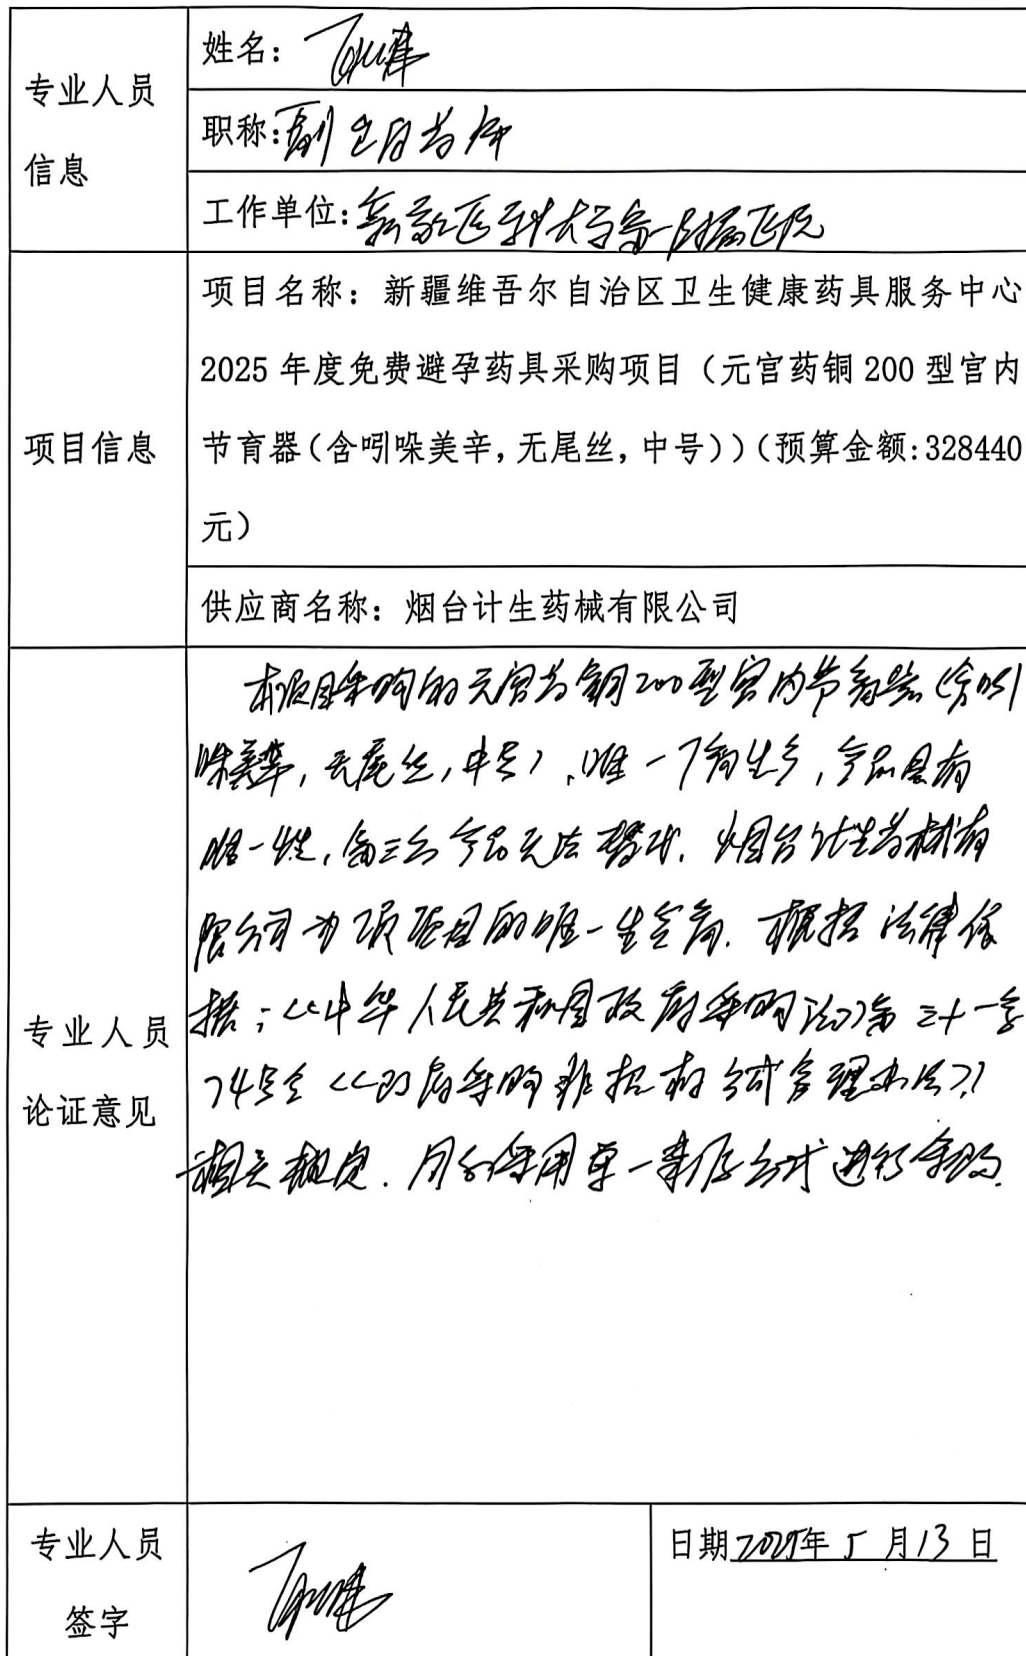 专业人员
信息
姓名：
职称：副主任药师
工作单位：新疆医科大学第一附属医院
项目信息
项目名称：新疆维吾尔自治区卫生健康药具服务中心
2025 年度免费避孕药具采购项目（元宫药铜 200 型宫内
节育器（含吲哚美辛，无尾丝，中号））（预算金额：328440
元）
供应商名称：烟台计生药械有限公司
专业人员
论证意见
本项目采购的元宫药铜200型宫内节育器（含吲
哚美辛，无尾丝，中号），唯一厂商生产，产品具有
唯一性，第三方产品无法替代. 烟台计生药械有
限公司为该项目的唯一生产商. 根据法律依
据；《中华人民共和国政府采购法》第三十一条
74号令《政府采购非招标方式管理办法》
相关规定. 同意采用单一来源方式进行采购.
专业人员
签字
日期 2025年 5 月 13 日